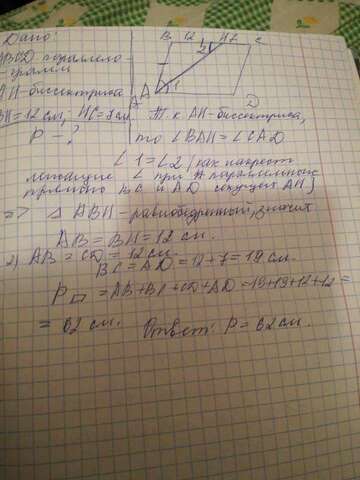 Дано:
B 12 H 7 C
ABCD параллело-
грамм
2
AH-биссектриса
A 1 D
BH=12 см; HC=7 см
P - ?
Т.к AH-биссектриса,
то ∠BAH=∠CAD
∠1=∠2 (как накрест
лежащие ∠ при параллельных
прямых BC и AD секущей AH)
=> Δ ABH-равнобедренный, значит
AB=BH=12 см.
2) AB=CD=12 см.
BC=AD=12+7=19 см.
P▱=AB+BC+CD+AD=19+19+12+12=
=62 см. Ответ: P=62см.